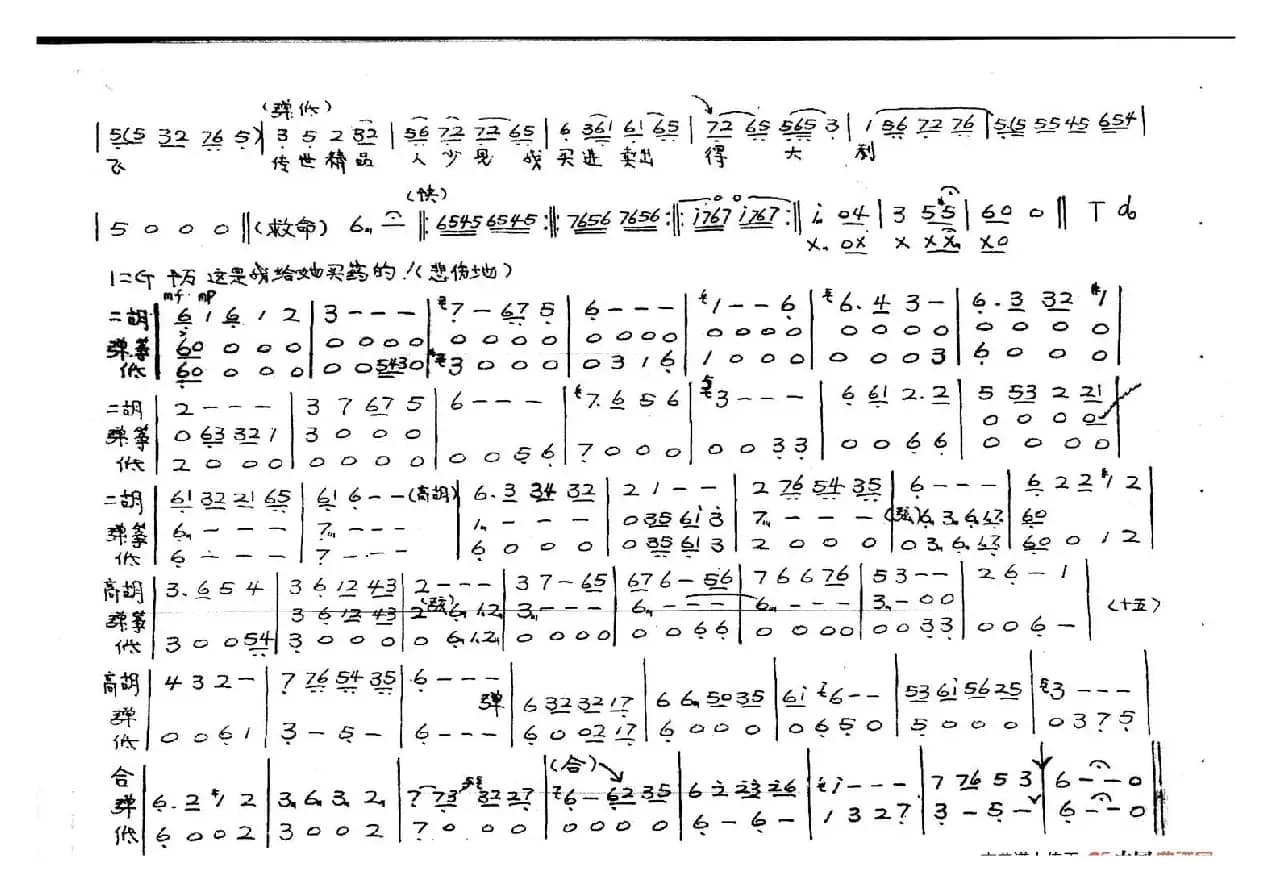 (弹低)
| 5(5 32 76 5) | 3 5 2 32 | 56 72 72 65 | 6 361 61 65 | 72 65 565 3 | 1 56 72 76 | 5(5 55 45 654 |
飞 传世精品 人少见 我买进卖出 得 大 利
(快)
| 5 0 0 0 ‖ (救命) 6 - ‖: 6545 6545 :‖: 7656 7656 :‖: i767 i767 :‖ i 04 | 3 55 | 60 0 ‖ T do
x 0x x xx x0
1=G 千万 这是我给她买药的!(悲伤地)
mf mp
二胡 | 6 1 6 1 2 | 3 - - - | 7 - 67 5 | 6 - - - | 1 - - 6 | 6. 4 3 - | 6. 3 32 1 |
弹筝 | 60 0 0 0 | 0 0 0 0 | 0 0 0 0 | 0 0 0 0 | 0 0 0 0 | 0 0 0 0 | 0 0 0 0 |
低 | 60 0 0 0 | 0 0 543 0 | 3 0 0 0 | 0 3 1 6 | 1 0 0 0 | 0 0 0 3 | 6 0 0 0 |
二胡 | 2 - - - | 3 7 67 5 | 6 - - - | 7. 6 5 6 | 3 - - - | 6 61 2. 2 | 5 53 2 21 |
弹筝 | 0 63 32 1 | 3 0 0 0 | 0 0 0 0
低 | 2 0 0 0 | 0 0 0 0 | 0 0 5 6 | 7 0 0 0 | 0 0 3 3 | 0 0 6 6 | 0 0 0 0 |
二胡 | 61 32 21 65 | 61 6 - - (高胡) | 6. 3 34 32 | 2 1 - - | 2 76 54 35 | 6 - - - | 6 2 2 1 2 |
弹筝 | 6 - - - | 7 - - - | 1 - - - | 0 35 61 3 | 7 - - - | (弦) 6 3 6 17 | 60
低 | 6 - - - | 7 - - - | 6 0 0 0 | 0 35 61 3 | 2 0 0 0 | 0 3 6 17 | 60 0 1 2 |
高胡 | 3. 6 5 4 | 3 6 12 43 | 2 - - - | 3 7 - 65 | 67 6 - 56 | 7 6 6 76 | 5 3 - - | 2 6 - 1
弹筝 | 3 6 12 43 | 2 (弦) 6 1 2 | 3 - - - | 6 - - - | 6 - - - | 3 - 0 0 | (十五)
低 | 3 0 0 54 | 3 0 0 0 | 0 6 1 2 | 0 0 0 0 | 0 0 6 6 | 0 0 0 0 | 0 0 3 3 | 0 0 6 -
高胡 | 4 3 2 - | 7 76 54 35 | 6 - - -
弹 弹 | 6 32 32 17 | 6 6 50 35 | 6i 6 - - | 53 6i 56 25 | 3 - - - |
低 | 0 0 6 1 | 3 - 5 - | 6 - - - | 6 0 02 17 | 6 0 0 0 | 0 6 5 0 | 5 0 0 0 | 0 3 7 5 |
合 (合)
弹 | 6. 2 1 2 | 3 6 3 2 | 7 73 32 27 | 6 - 62 35 | 6 2 23 26 | i - - - | 7 76 5 3 | 6 - - 0 ‖
低 | 6 0 0 2 | 3 0 0 2 | 7 0 0 0 | 0 0 0 0 | 6 - 6 - | 1 3 2 7 | 3 - 5 - | 6 - - 0 ‖